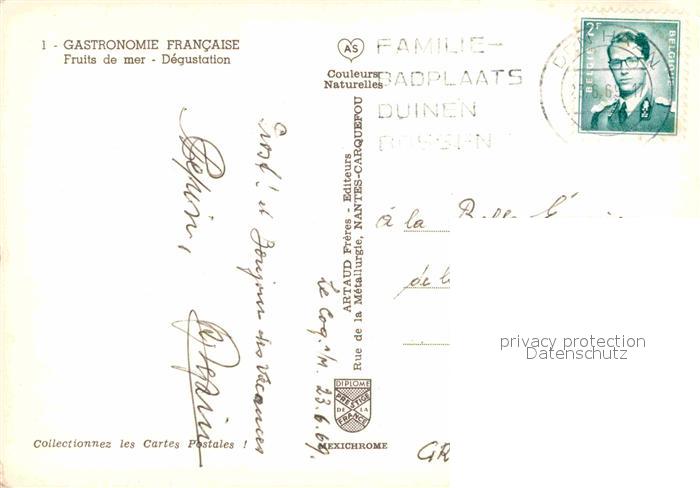 1 - GASTRONOMIE FRANÇAISE
Fruits de mer - Dégustation
AS
Couleurs
Naturelles
FAMILIE-
BADPLAATS
DUINEN
BOSSEN
DE HAAN
2F
BELGIE
BELGIQUE
ARTAUD Frères - Editeurs
Rue de la Métallurgie, NANTES-CARQUEFOU
Prost! et Bonjour des Vacances
Le Coq s/M. 23.6.69.
à la
privacy protection
Datenschutz
DIPLOME
PRESTIGE
DE LA
FRANCE
MEXICHROME
GR
Collectionnez les Cartes Postales !